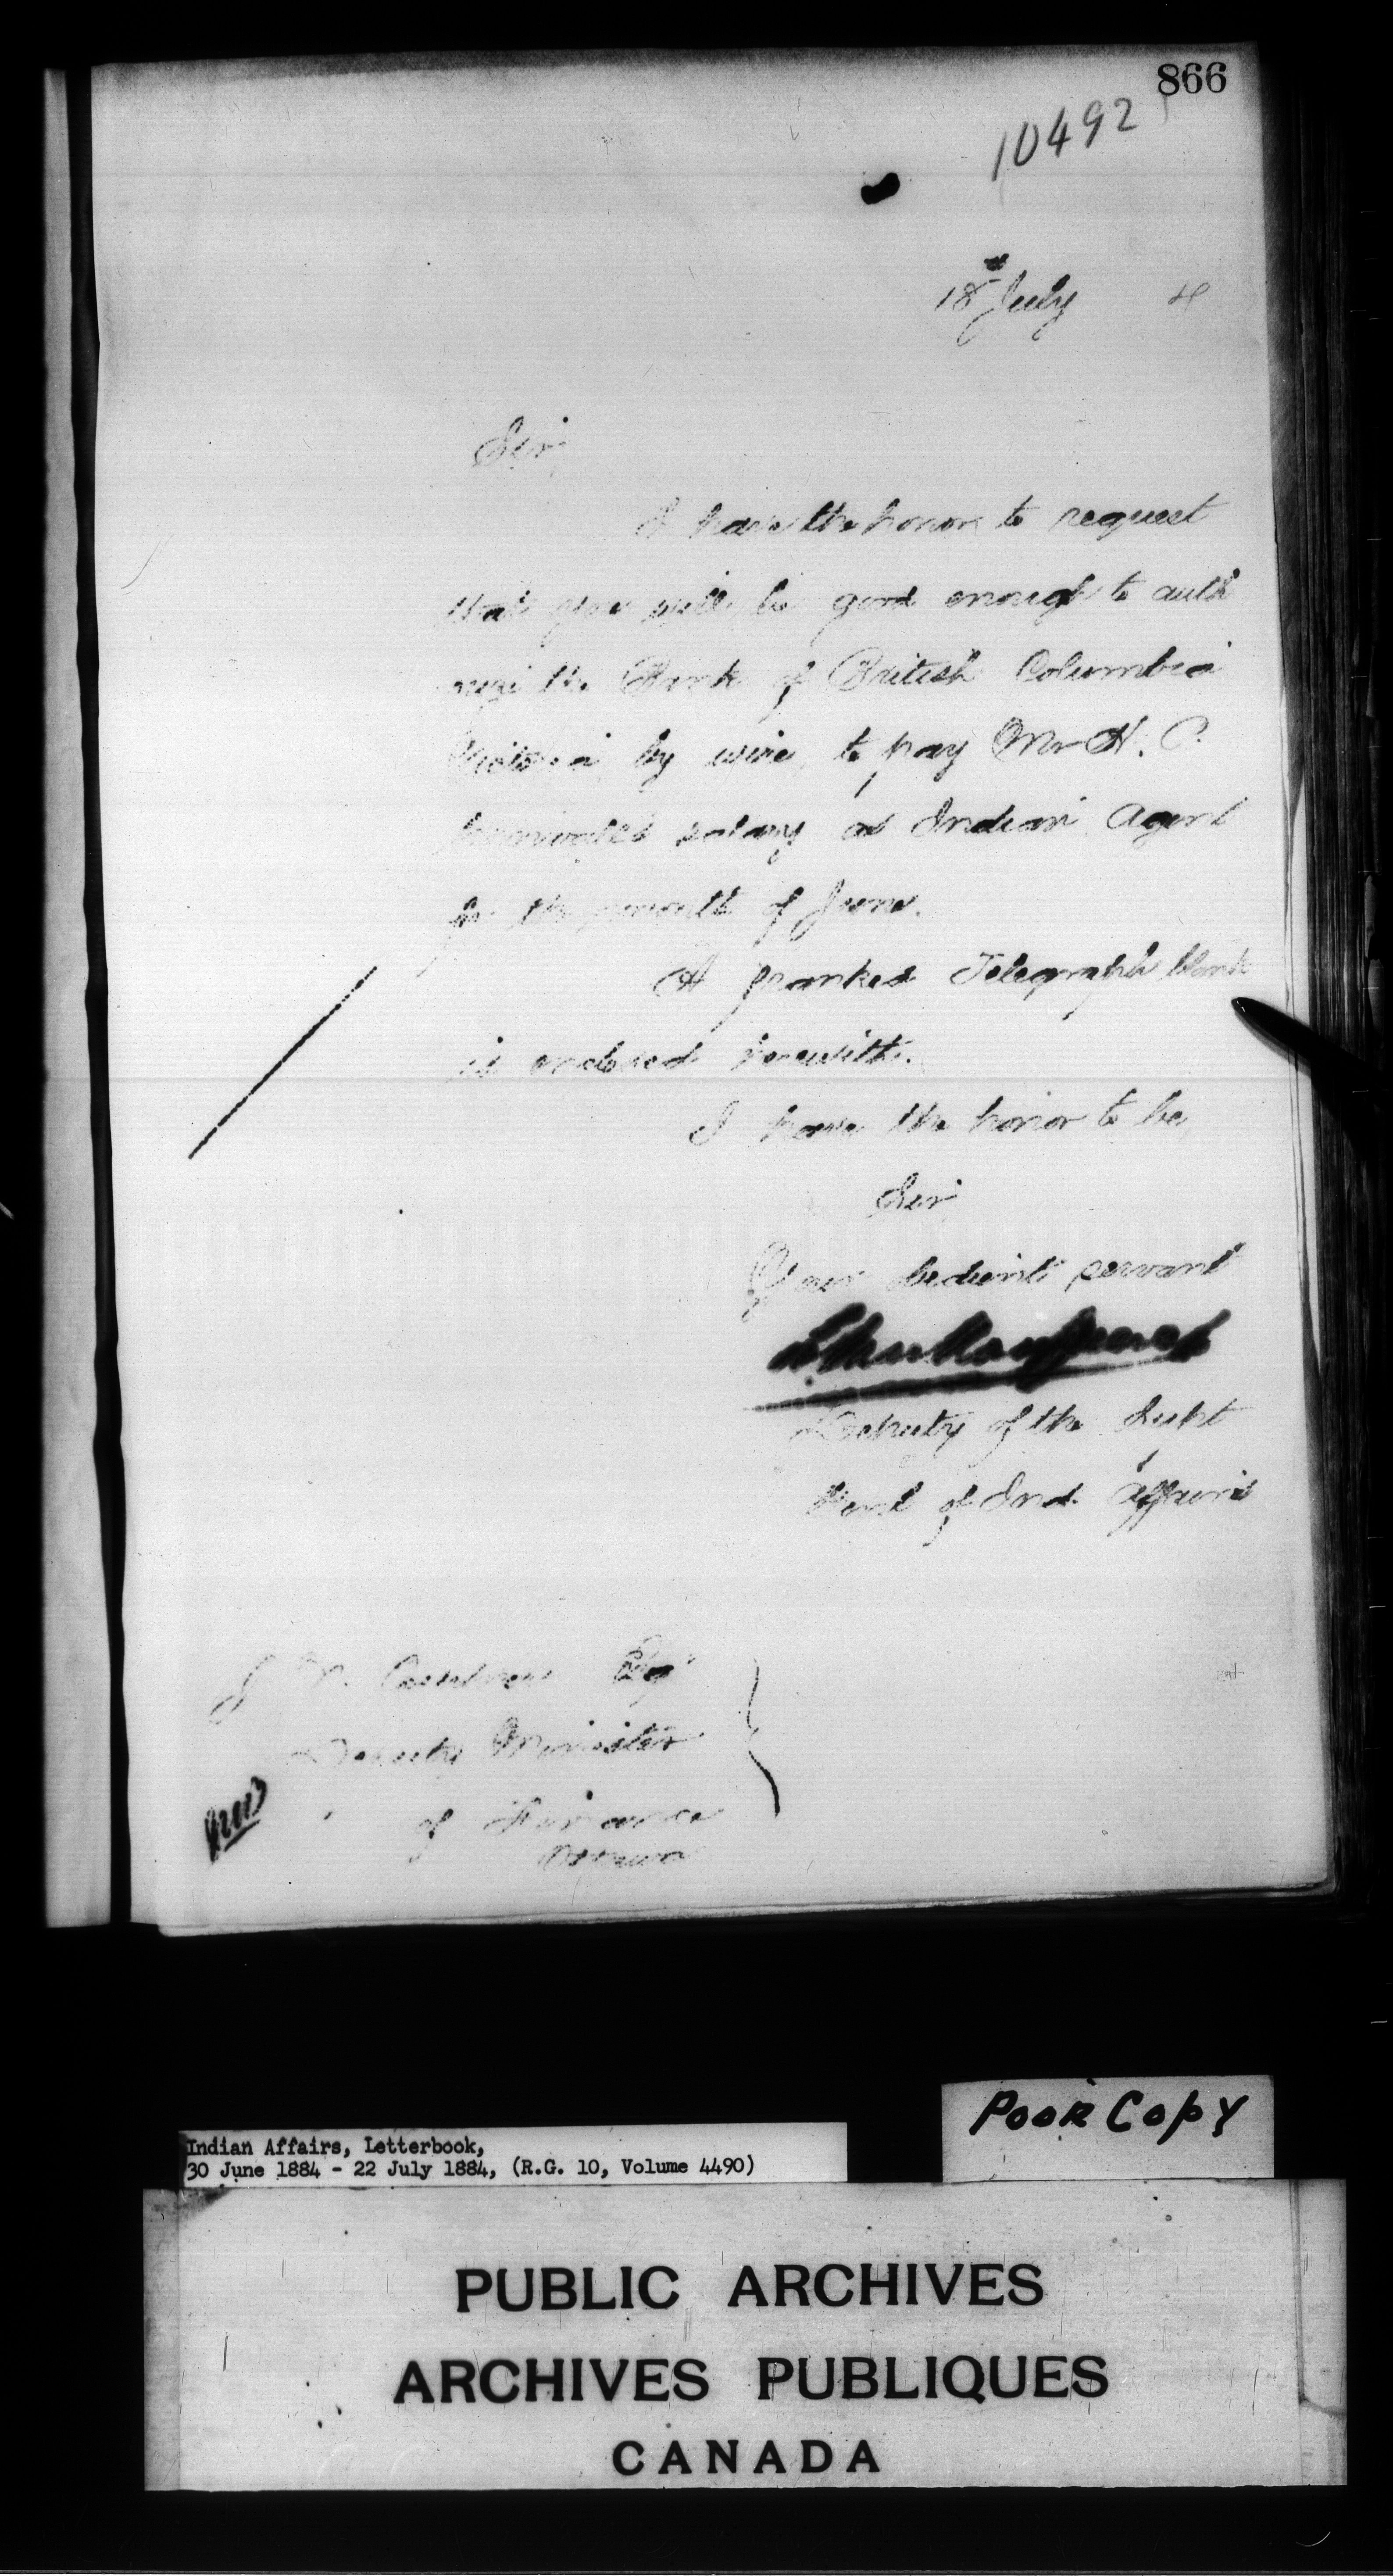 866
10492
18th July 4
Sir,
I have the honor to request
that you will be good enough to auth
orize the Bank of British Columbia
Victoria by wire, to pay Mr H. C.
salary as Indian Agent
for the month of June.
A franked Telegraph blank
is enclosed herewith.
I have the honor to be,
Sir,
Your obedient servant
Deputy of the Supt
Genl of Ind. Affairs
J. M. Courtney Esq
Deputy Minister
of Finance
Ottawa
Poor Copy
Indian Affairs, Letterbook,
30 June 1884 - 22 July 1884, (R.G. 10, Volume 4490)
PUBLIC ARCHIVES
ARCHIVES PUBLIQUES
CANADA